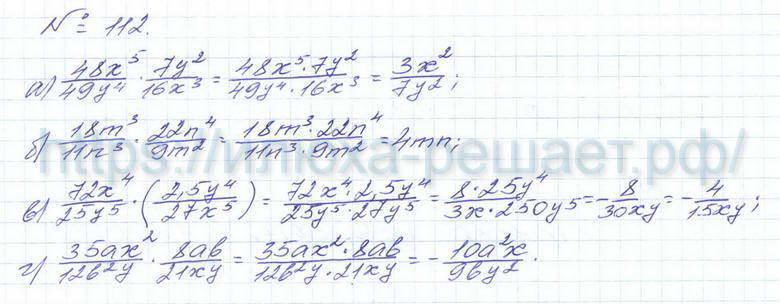 № 112.
а) 48x⁵/49y⁴ · 7y²/16x³ = 48x⁵·7y²/49y⁴·16x³ = 3x²/7y²;
б) 18m³/11n³ · 22n⁴/9m² = 18m³·22n⁴/11n³·9m² = 4mn;
https://илюха-решает.рф/
в) 72x⁴/25y⁵ · (2,5y⁴/27x⁵) = 72x⁴·2,5y⁴/25y⁵·27y⁵ = 8·25y⁴/3x·250y⁵ = -8/30xy = -4/15xy;
г) 35ax²/12b²y · 8ab/21xy = 35ax²·8ab/12b²y·21xy = -10a²x/9by².